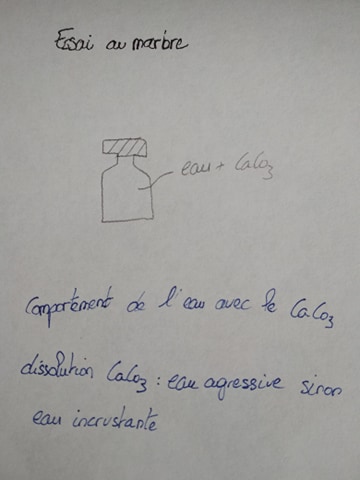 Essai au marbre
eau + CaCo3
Comportement de l'eau avec le CaCo3
dissolution CaCo3 : eau agressive sinon
eau incrustante